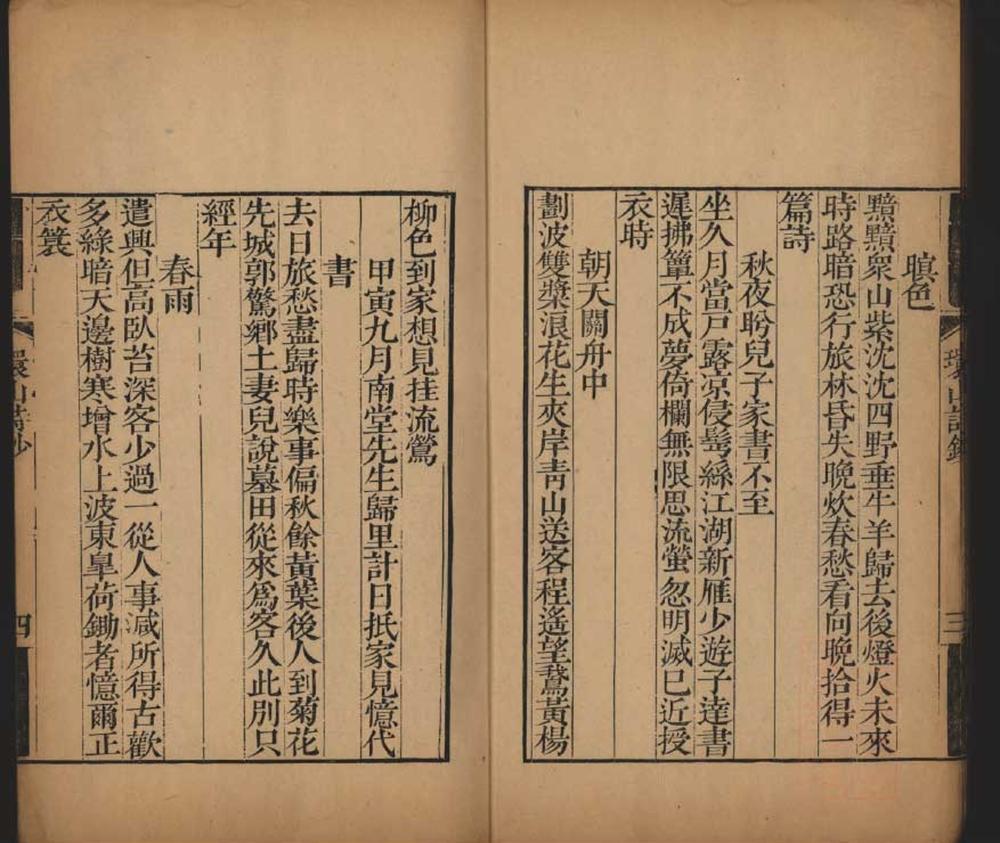 暝色
黯黯衆山紫沈沈四野垂牛羊歸去後燈火未來
時路暗恐行旅林昏失晚炊春愁看向晚拾得一
篇詩
秋夜聆兒子家書不至
坐久月當戸露凉侵鬂絲江湖新雁少遊子達書
遲拂簟不成夢倚欄無限思流螢忽明滅已近授
衣時
朝天關舟中
劃波雙槳浪花生夾岸靑山送客程遙望鵞黃楊
柳色到家想見挂流鶯
甲寅九月南堂先生歸里計日抵家見憶代
書
去日旅愁盡歸時樂事偏秋餘黃葉後人到菊花
先城郭驚鄉土妻兒說墓田從來爲客久此別只
經年
春雨
遣興但高臥苔深客少過一從人事減所得古歡
多綠暗天邊樹寒增水上波東臯荷鋤者憶爾正
衣簑
環山詩鈔
三
環山詩鈔
四